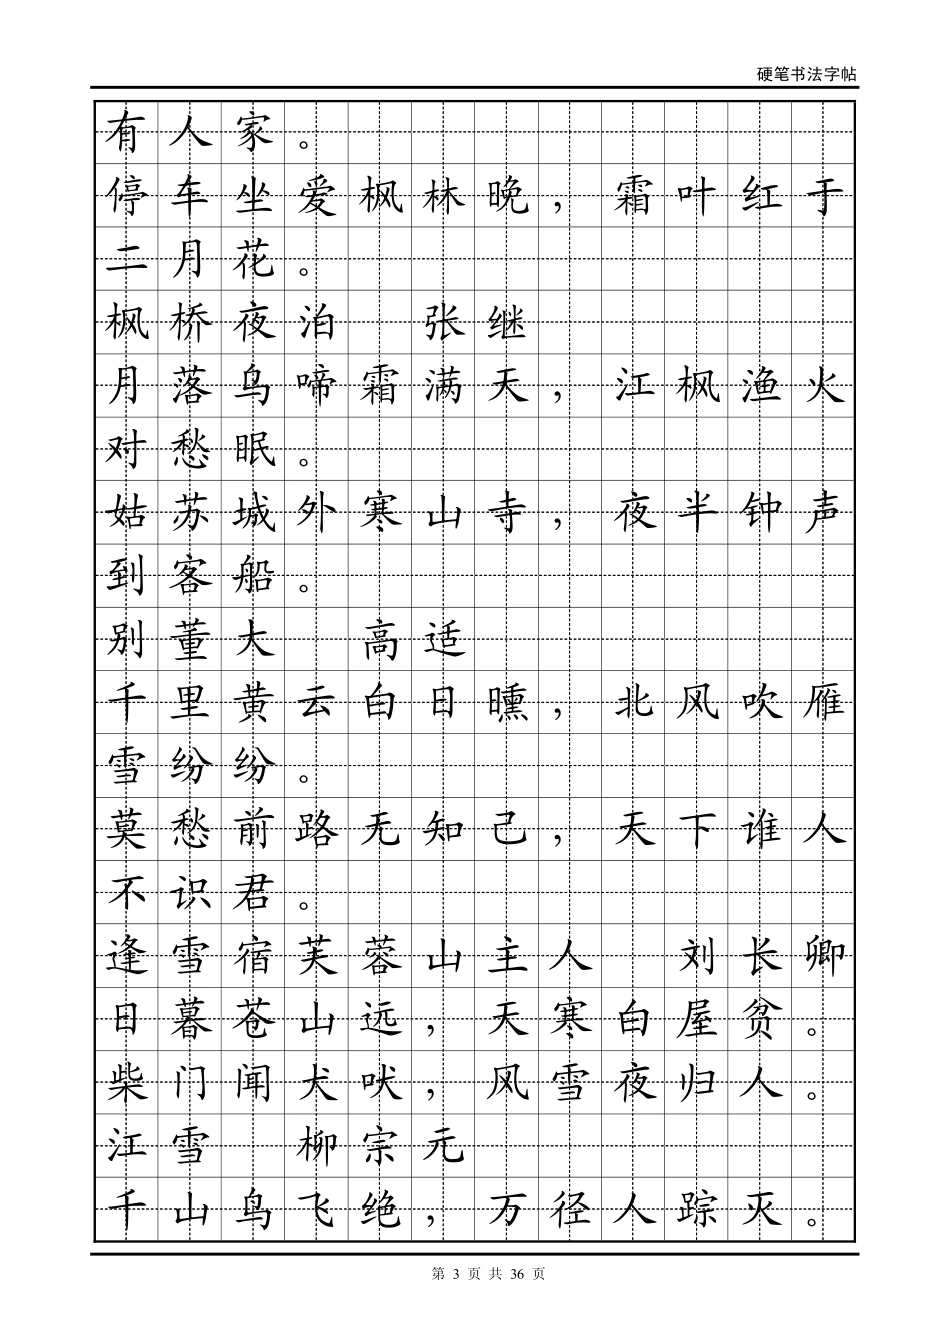 硬笔书法字帖
有人家。
停车坐爱枫林晚，霜叶红于
二月花。
枫桥夜泊　张继
月落乌啼霜满天，江枫渔火
对愁眠。
姑苏城外寒山寺，夜半钟声
到客船。
别董大　高适
千里黄云白日曛，北风吹雁
雪纷纷。
莫愁前路无知己，天下谁人
不识君。
逢雪宿芙蓉山主人　刘长卿
日暮苍山远，天寒白屋贫。
柴门闻犬吠，风雪夜归人。
江雪　柳宗元
千山鸟飞绝，万径人踪灭。
第 3 页 共 36 页